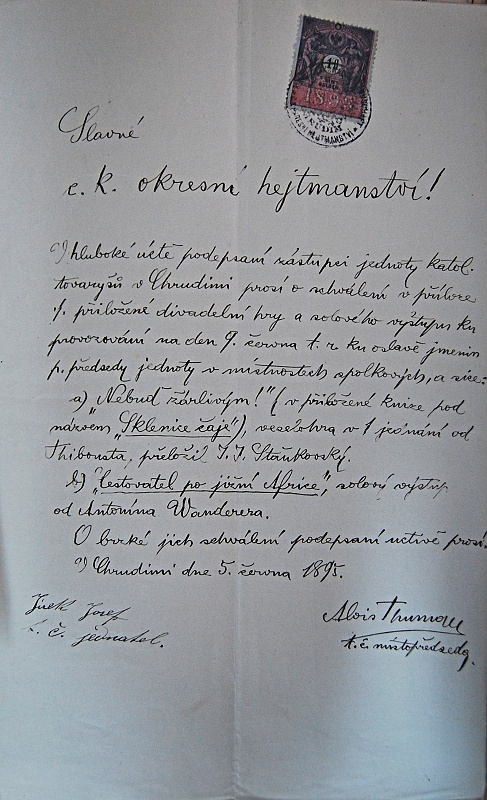 1893
CHRUDIM
Slavné
c. k. okresní hejtmanství!
V hluboké úctě podepsaní zástupci jednoty katol.
tovaryšů v Chrudimi prosí o schválení v příloze
·/. přiložené divadelní hry a solového výstupu ku
provozování na den 9. června t. r. ku oslavě jmenin
p. předsedy jednoty v místnostech spolkových, a sice:
a) „Nebuď žárlivým!" (v přiložené knize pod
názvem „Sklenice čaje"), veselohra v 1 jednání od
přeložil J. J. Staňkovský.
b) „Cestovatel po jižní Africe", solový výstup
od Antonína Wanderera.
O brzké jich schválení podepsaní uctivě prosí.
V Chrudimi dne 5. června 1895.
Josef
t. č. jednatel.
Alois
t. č. místopředseda